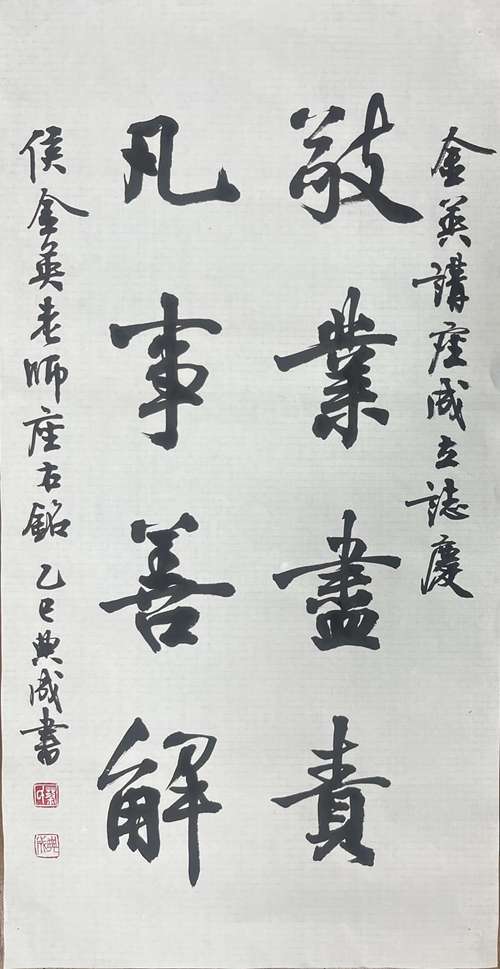 金英講座成立誌慶
敬業盡責
凡事善解
侯金英老師座右銘 乙巳典成書